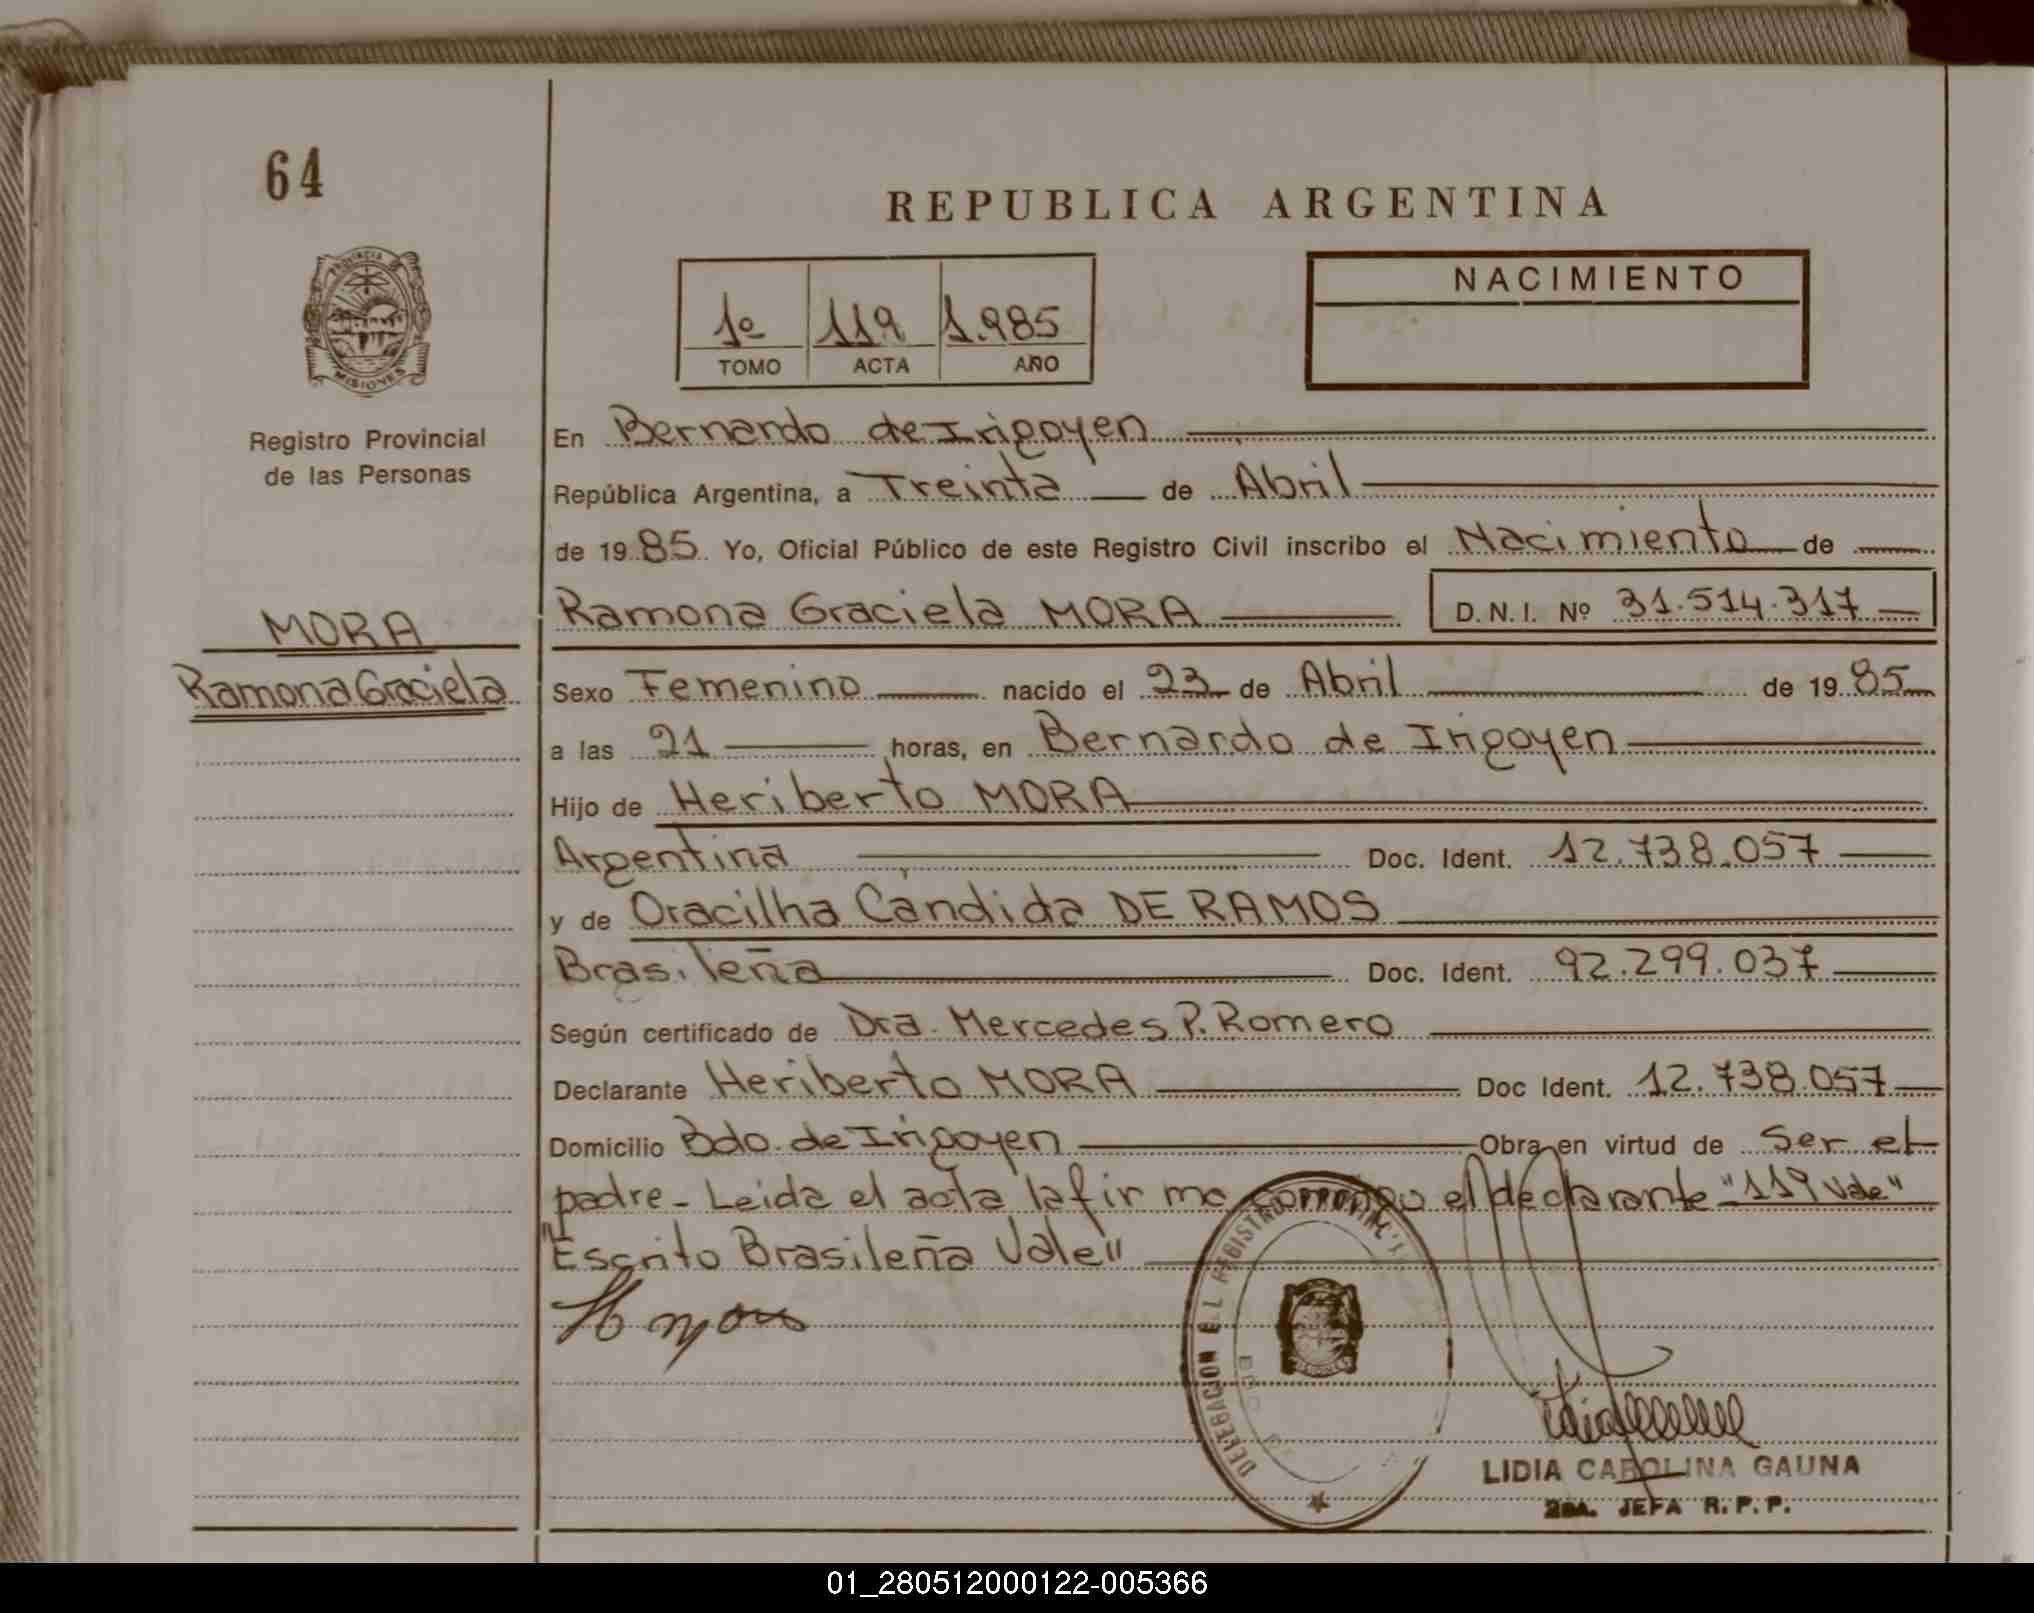 64
REPUBLICA ARGENTINA
PROVINCIA DE
MISIONES
1º 119 1.985
TOMO ACTA AÑO
NACIMIENTO
Registro Provincial
de las Personas
En Bernardo de Irigoyen
República Argentina, a Treinta de Abril
de 1985 Yo, Oficial Público de este Registro Civil inscribo el Nacimiento de
Ramona Graciela MORA D.N.I. Nº 31.514.317
MORA
Ramona Graciela
Sexo Femenino nacido el 23 de Abril de 1985
a las 21 horas, en Bernardo de Irigoyen
Hijo de Heriberto MORA
Argentina Doc. Ident. 12.738.057
y de Oracilha Cándida DE RAMOS
Brasileña Doc. Ident. 92.299.037
Según certificado de Dra. Mercedes P. Romero
Declarante Heriberto MORA Doc Ident. 12.738.057
Domicilio Bdo. de Irigoyen Obra en virtud de Ser el
padre - Leida el acta la firma conmigo el declarante "119 Vale"
"Escrito Brasileña Vale"
DELEGACION DEL REGISTRO
LIDIA CAROLINA GAUNA
2DA. JEFA R.P.P.
01_280512000122-005366